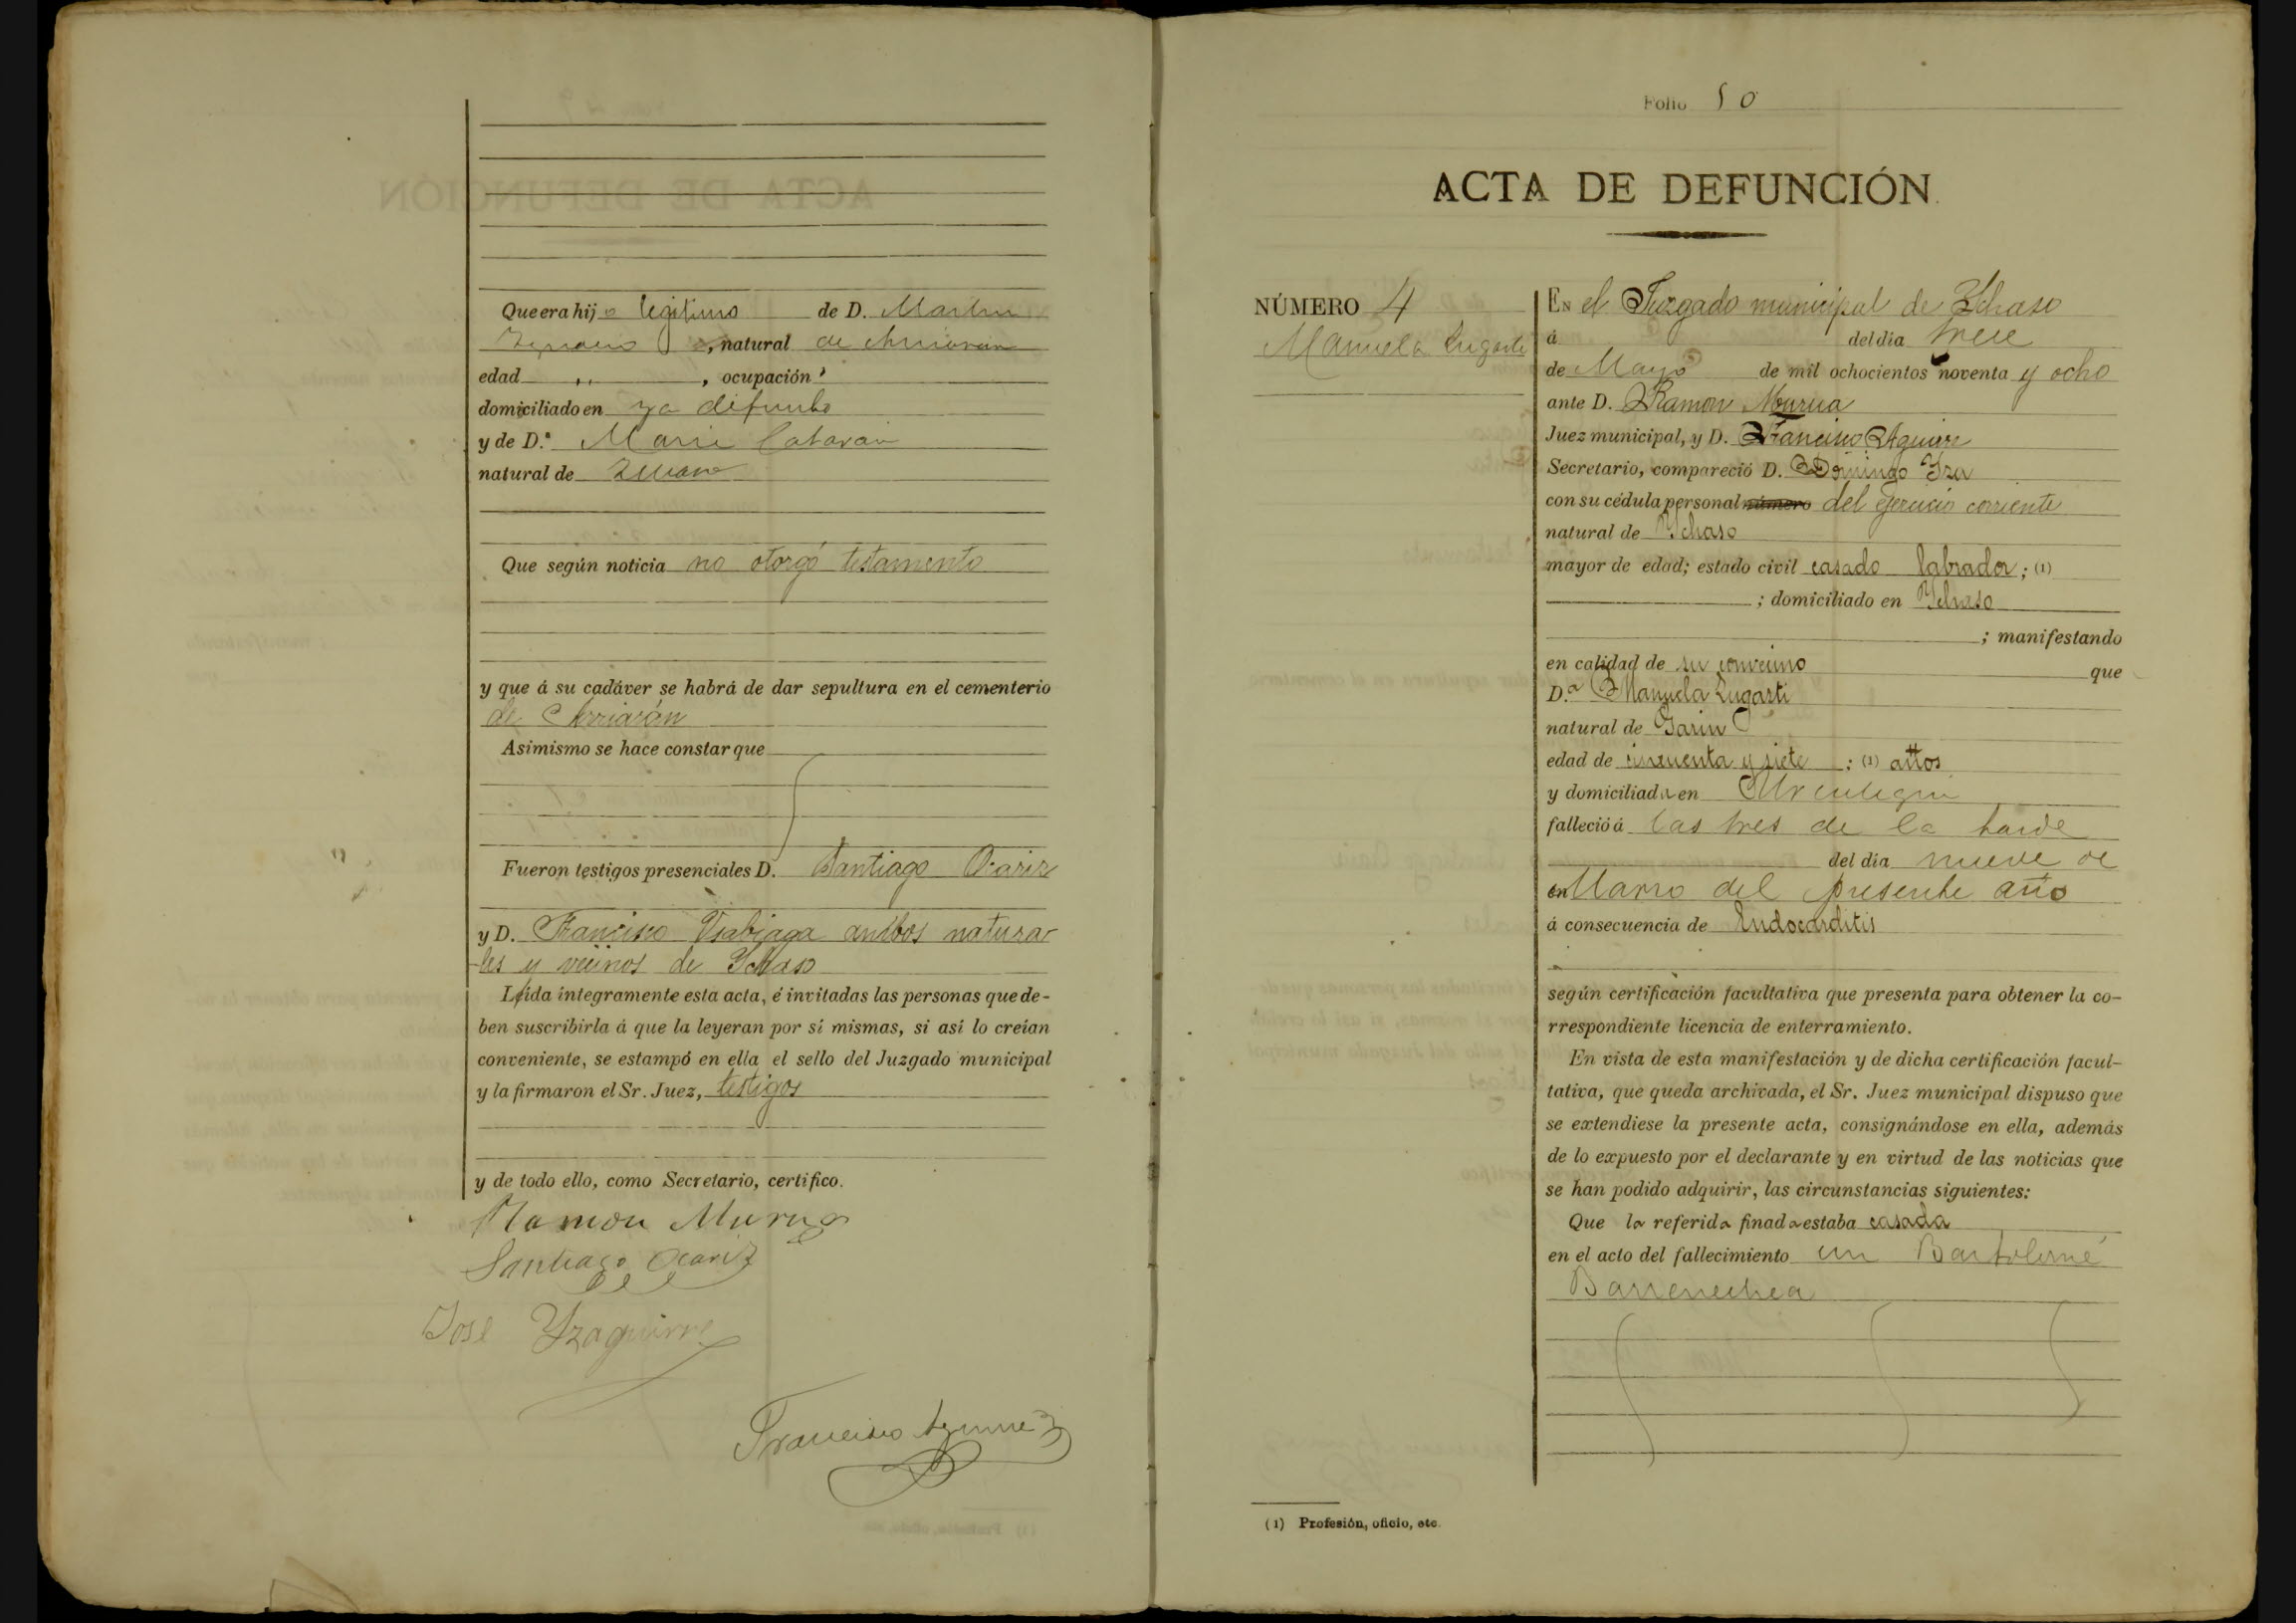 Que era hijo legitimo de D. Martin
, natural de Arriaran
edad ,, , ocupación "
domiciliado en ya difunto
y de D.ª Maria
natural de
Que según noticia no otorgó testamento
y que á su cadáver se habrá de dar sepultura en el cementerio
de Arriarán
Asimismo se hace constar que
Fueron testigos presenciales D. Santiago Ocariz
y D. Francisco Usabiaga ambos natura-
les y vecinos de Ychaso
Leida íntegramente esta acta, é invitadas las personas que de-
ben suscribirla á que la leyeran por sí mismas, si así lo creían
conveniente, se estampó en ella el sello del Juzgado municipal
y la firmaron el Sr. Juez, testigos
y de todo ello, como Secretario, certifico.
Ramon Murua
Santiago Ocariz
José Yzaguirre
Francisco Aguirre
Folio 50
ACTA DE DEFUNCIÓN.
NÚMERO 4
Manuela Lugarti
EN el Juzgado municipal de Ychaso
á del dia trece
de Mayo de mil ochocientos noventa y ocho
ante D. Ramon Murua
Juez municipal, y D. Francisco Aguirre
Secretario, compareció D. Domingo Yza
con su cédula personal número del ejercicio corriente
natural de Ychaso
mayor de edad; estado civil casado labrador; (1)
; domiciliado en Ychaso
; manifestando
en calidad de su convecino que
D.ª Manuela Lugarti
natural de Gasin
edad de cincuenta y siete ; (1) años
y domiciliada en
falleció á las tres de la tarde
del dia nueve de
en Marzo del presente año
á consecuencia de Endocarditis
según certificación facultativa que presenta para obtener la co-
rrespondiente licencia de enterramiento.
En vista de esta manifestación y de dicha certificación facul-
tativa, que queda archivada, el Sr. Juez municipal dispuso que
se extendiese la presente acta, consignándose en ella, además
de lo expuesto por el declarante y en virtud de las noticias que
se han podido adquirir, las circunstancias siguientes:
Que la referida finada estaba casada
en el acto del fallecimiento con Bartolomé
Barrenechea
(1) Profesión, oficio, etc.